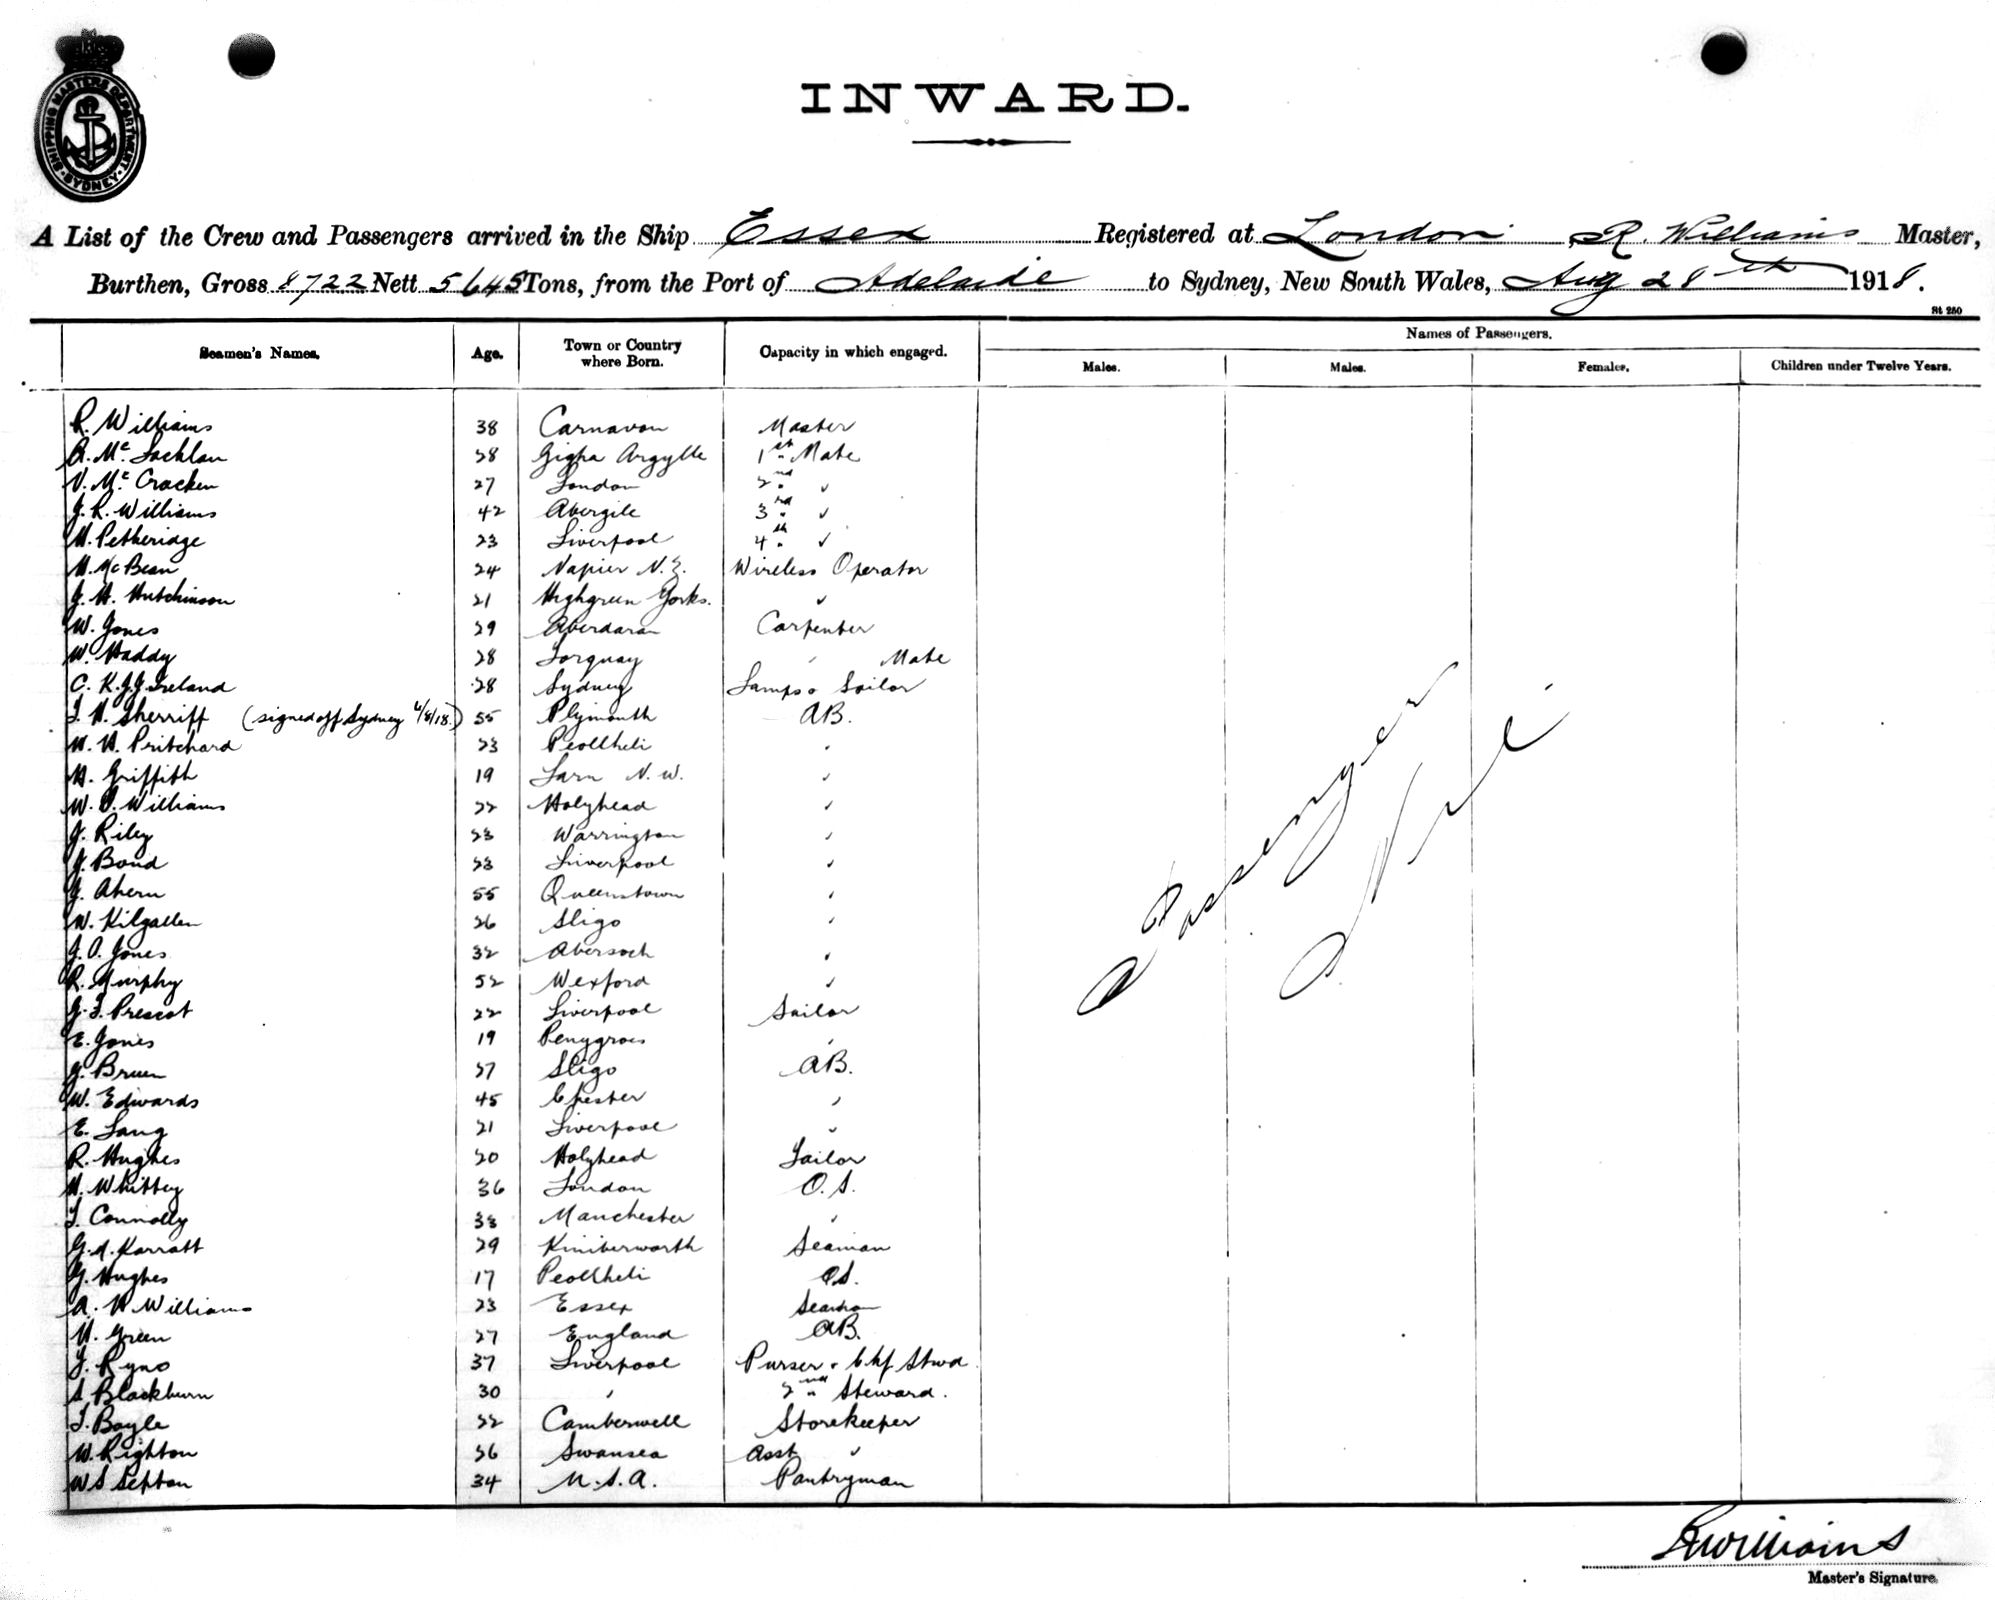 SHIPPING MASTERS DEPARTMENT · SYDNEY ·
INWARD.
A List of the Crew and Passengers arrived in the Ship Essex Registered at London, R. Williams Master,
Burthen, Gross 8722 Nett 5645 Tons, from the Port of Adelaide to Sydney, New South Wales, Aug 28th 1918.
St 250
Seamen's Names. Age. Town or Country where Born. Capacity in which engaged. Names of Passengers.
Males. Males. Females. Children under Twelve Years.
R. Williams 38 Carnavon Master
A. Mc Lachlan 28 Gigha Argylle 1st Mate
V. Mc Cracken 27 London 2nd "
J. R. Williams 42 Abergile 3rd "
H. Petheridge 23 Liverpool 4th "
H. McBean 24 Napier N.Z. Wireless Operator
J. H. Hutchinson 21 Highgreen Yorks. "
W. Jones 29 Aberdaran Carpenter
W. Haddy 28 Torquay " Mate
C. K.J.J. Ireland 28 Sydney Lamps & Sailor
T. H. Sherriff (signed off Sydney 4/8/18.) 55 Plymouth AB.
W. H. Pritchard 23 Peollheli "
H. Griffith 19 Sarn N.W. "
W. O. Williams 22 Holyhead "
J. Riley 23 Warrington "
J. Bond 23 Liverpool "
J. Ahern 55 Queenstown "
W. Kilgallen 26 Sligo "
J. O. Jones 32 Abersoch "
R. Murphy 52 Wexford "
G. T. Prescot 22 Liverpool Sailor
E. Jones 19 Penygroes "
J. Bruen 27 Sligo AB.
W. Edwards 45 Chester "
E. Lang 21 Liverpool "
R. Hughes 20 Holyhead Sailor
H. Whittey 36 London O.S.
T. Connolly 33 Manchester "
G. A. Karratt 29 Kimberworth Seaman
G. Hughes 17 Peollheli O.S.
A. H. Williams 23 Essex Seaman
H. Green 27 England AB.
J. Ryno 37 Liverpool Purser & Chf Stwd
S. Blackburn 30 " 2nd Steward.
T. Boyle 22 Camberwell Storekeeper
W. Righton 26 Swansea Asst "
W S Sefton 34 U.S.A. Pantryman
Passenger
Nil
R Williams
Master's Signature.